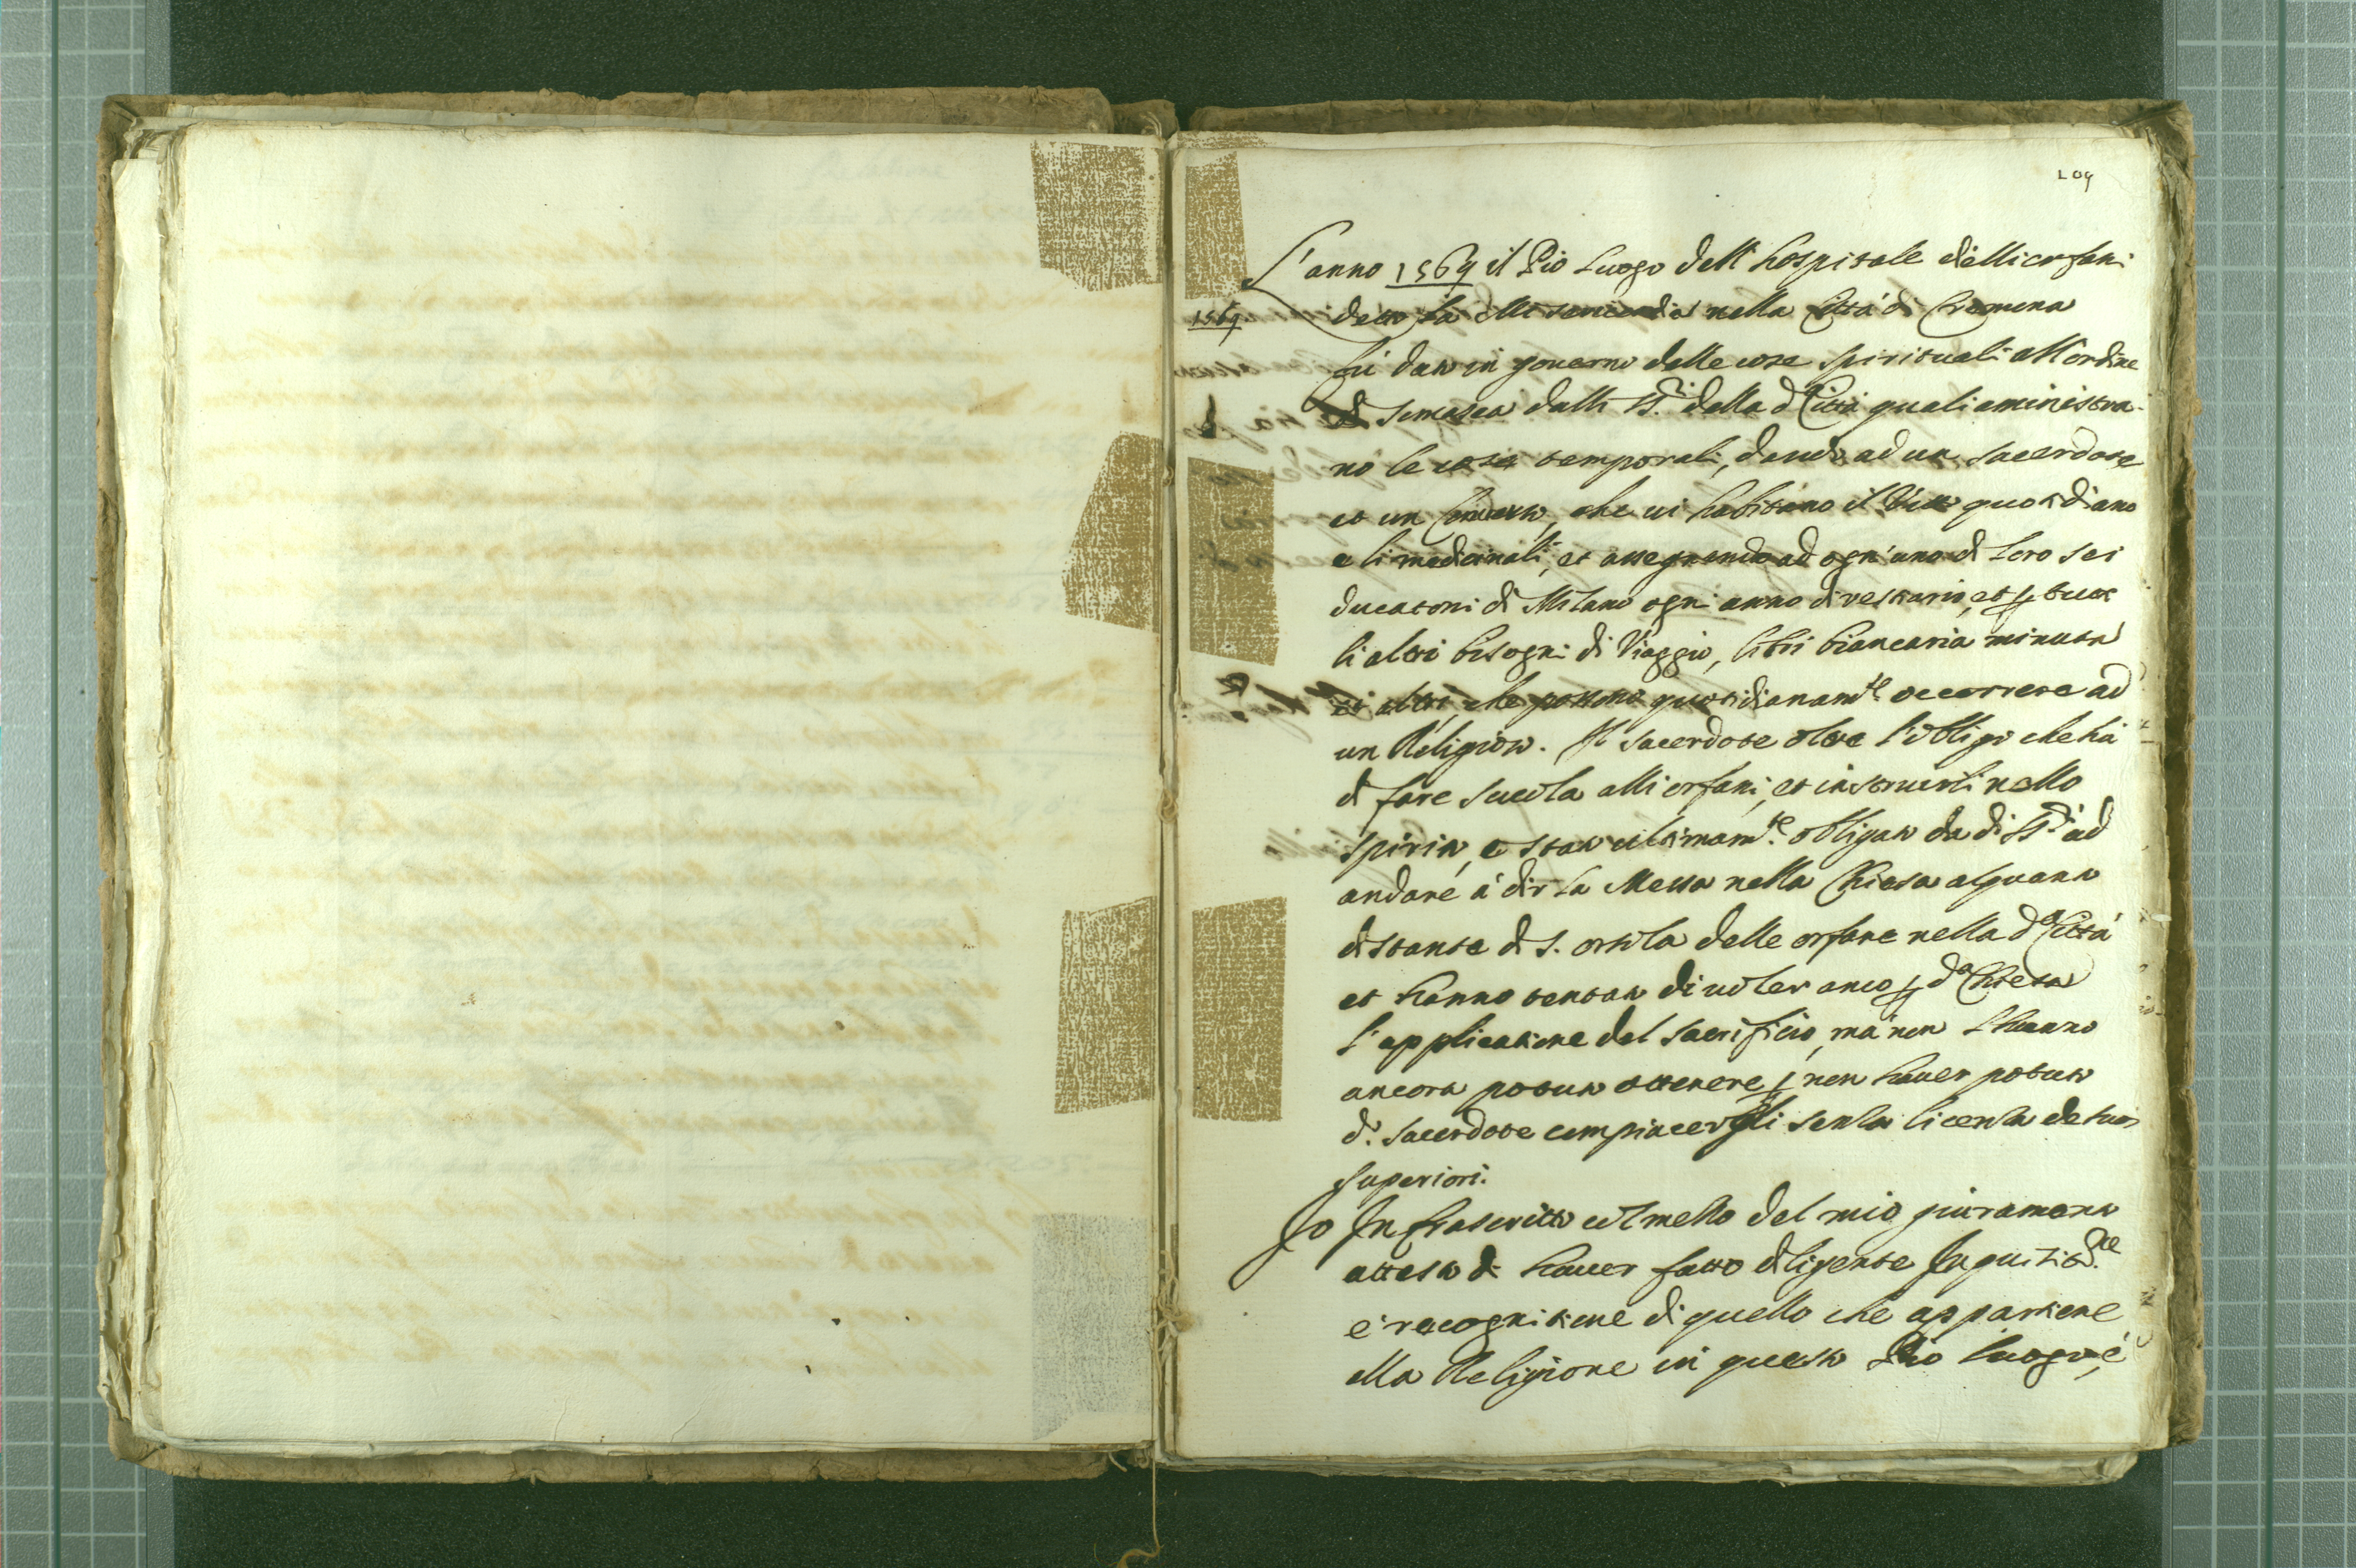 109
L'anno 1569 il Pio Luogo dell'hospitale delli orfani
1569
detto la Misericordia nella Città di Cremona
fù dato in gouerno delle cose spirituali all'ordine
di Somasca dalli SS.ri della d.a Città quali aministra-
no le cose temporali, dando ad un sacerdote
et un Conuerso, che ui habitano il vitto quotidiano
e li medicinali, et assegnando ad ogn'uno di loro sei
ducatoni di Milano ogni anno di vestiario, et p tutti
li altri bisogni di Viaggio, libri biancaria minuta
et altri che possono quotidianam.te occorrere ad
un Religioso. Il sacerdote oltre l'obligo che hà
di fare scuola alli orfani, et instruirli nello
spirito, è stato ultimam.te obligato da d.i SS.ri ad
andare à dir la Messa nella Chiesa alquanto
distante di S. Orsola delle orfane nella d.a Città
et hanno tentato di uoler anco p d.a Chiesa
l'applicatione del sacrificio, mà non l'hanno
ancora potuto ottenere p non hauer potuto
d.o sacerdote compiacergli senza licenza de suoi
superiori.
Io Infrascritto col mezzo del mio giuramento
attesto di hauer fatto diligente
e recognitione di quello che appartiene
alla Religione in questo Pio luogo, e